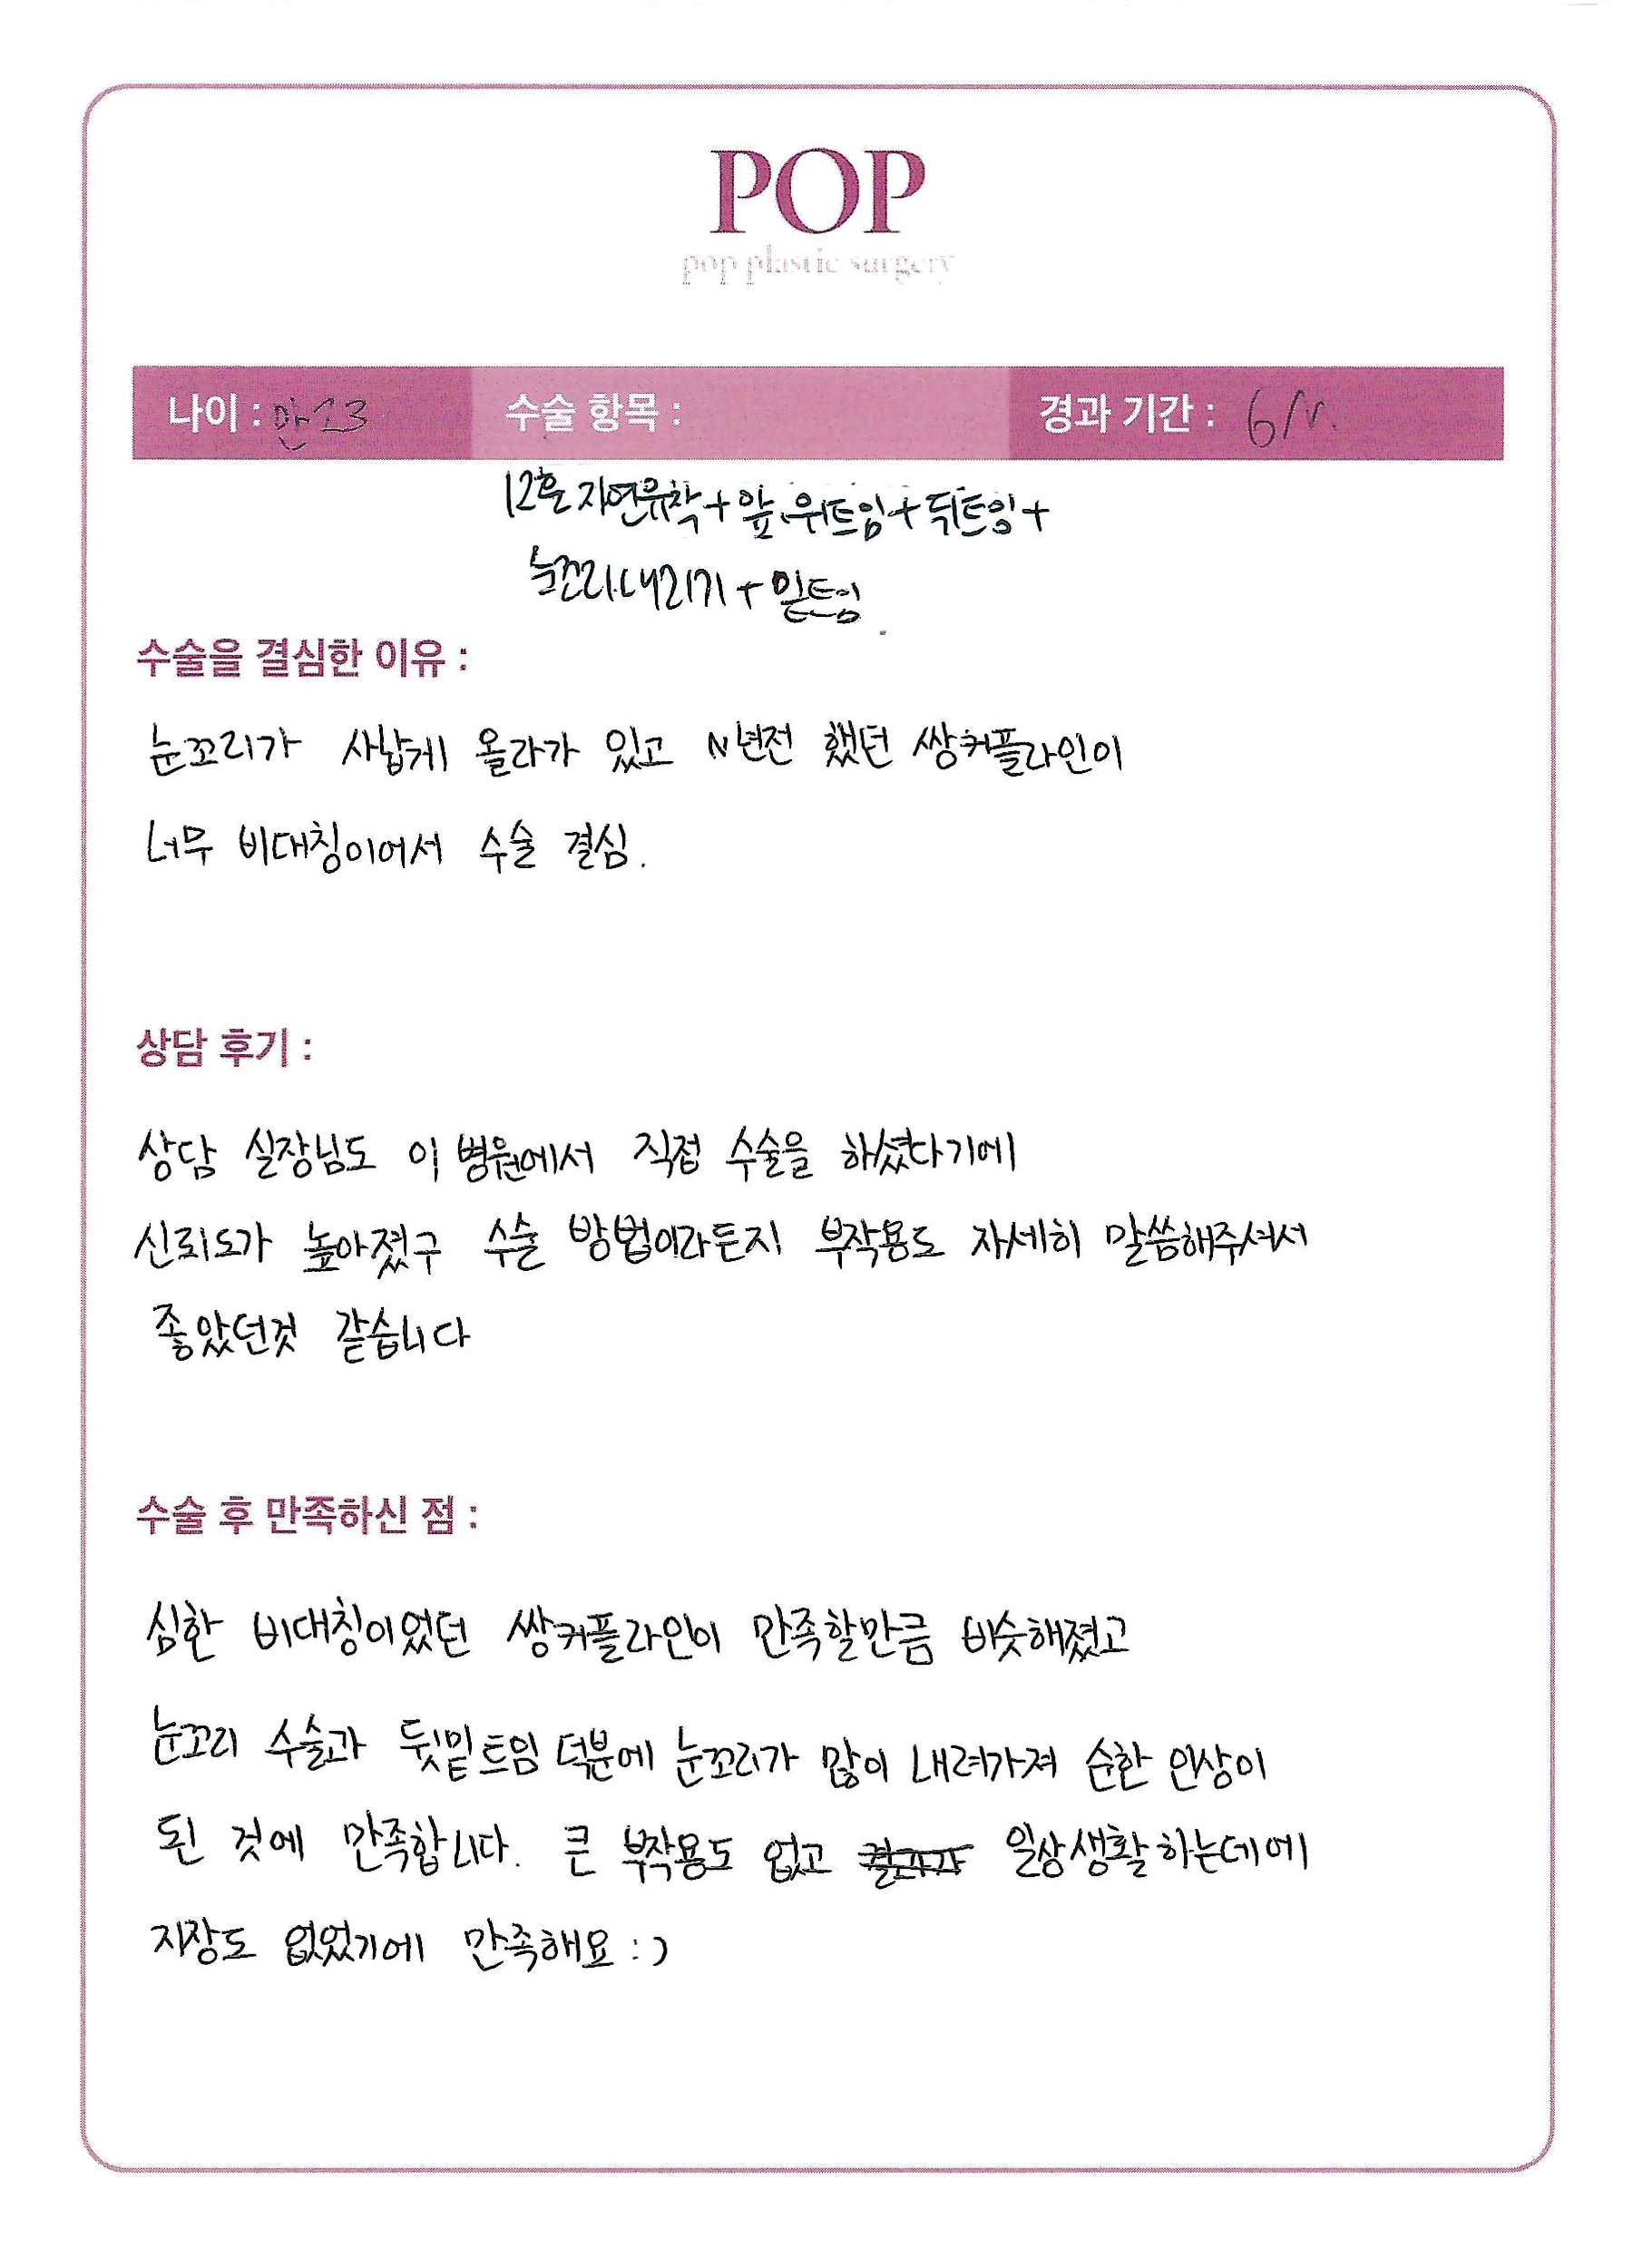 POP
pop plastic surgery
나이 : 만23 수술 항목 : 경과 기간 : 6/M
자연유착+앞.위트임+뒤트임+
눈꼬리내리기+밑트임
수술을 결심한 이유 :
눈꼬리가 사납게 올라가 있고 N년전 했던 쌍커플라인이
너무 비대칭이어서 수술 결심.
상담 후기 :
상담 실장님도 이 병원에서 직접 수술을 하셨다기에
신뢰도가 높아졌구 수술 방법이라든지 부작용도 자세히 말씀해주셔서
좋았던것 같습니다
수술 후 만족하신 점 :
심한 비대칭이었던 쌍커플라인이 만족할만큼 비슷해졌고
눈꼬리 수술과 뒷밑트임 덕분에 눈꼬리가 많이 내려가져 순한 인상이
된 것에 만족합니다. 큰 부작용도 없고 일상생활하는데에
지장도 없었기에 만족해요 : )